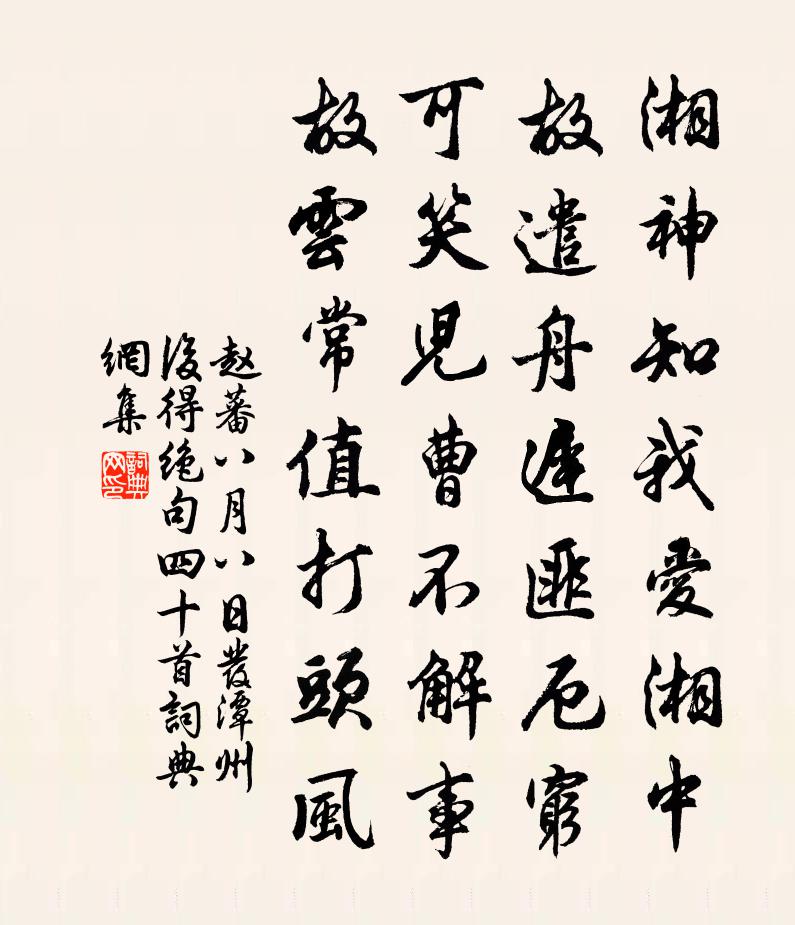 湘神知我愛湘中
故遣舟遲匪厄窮
可笑兒曹不解事
故雲常值打頭風
赵蕃八月八日發潭州
後得绝句四十首詞典
網集
詞典網印